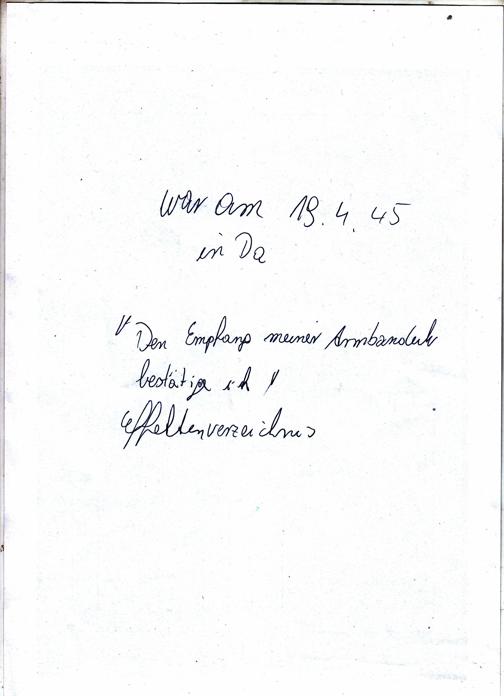 war am 19.4.45
in Da
" Den Empfang meiner Armbanduhr
bestätige ich "
Effektenverzeichnis